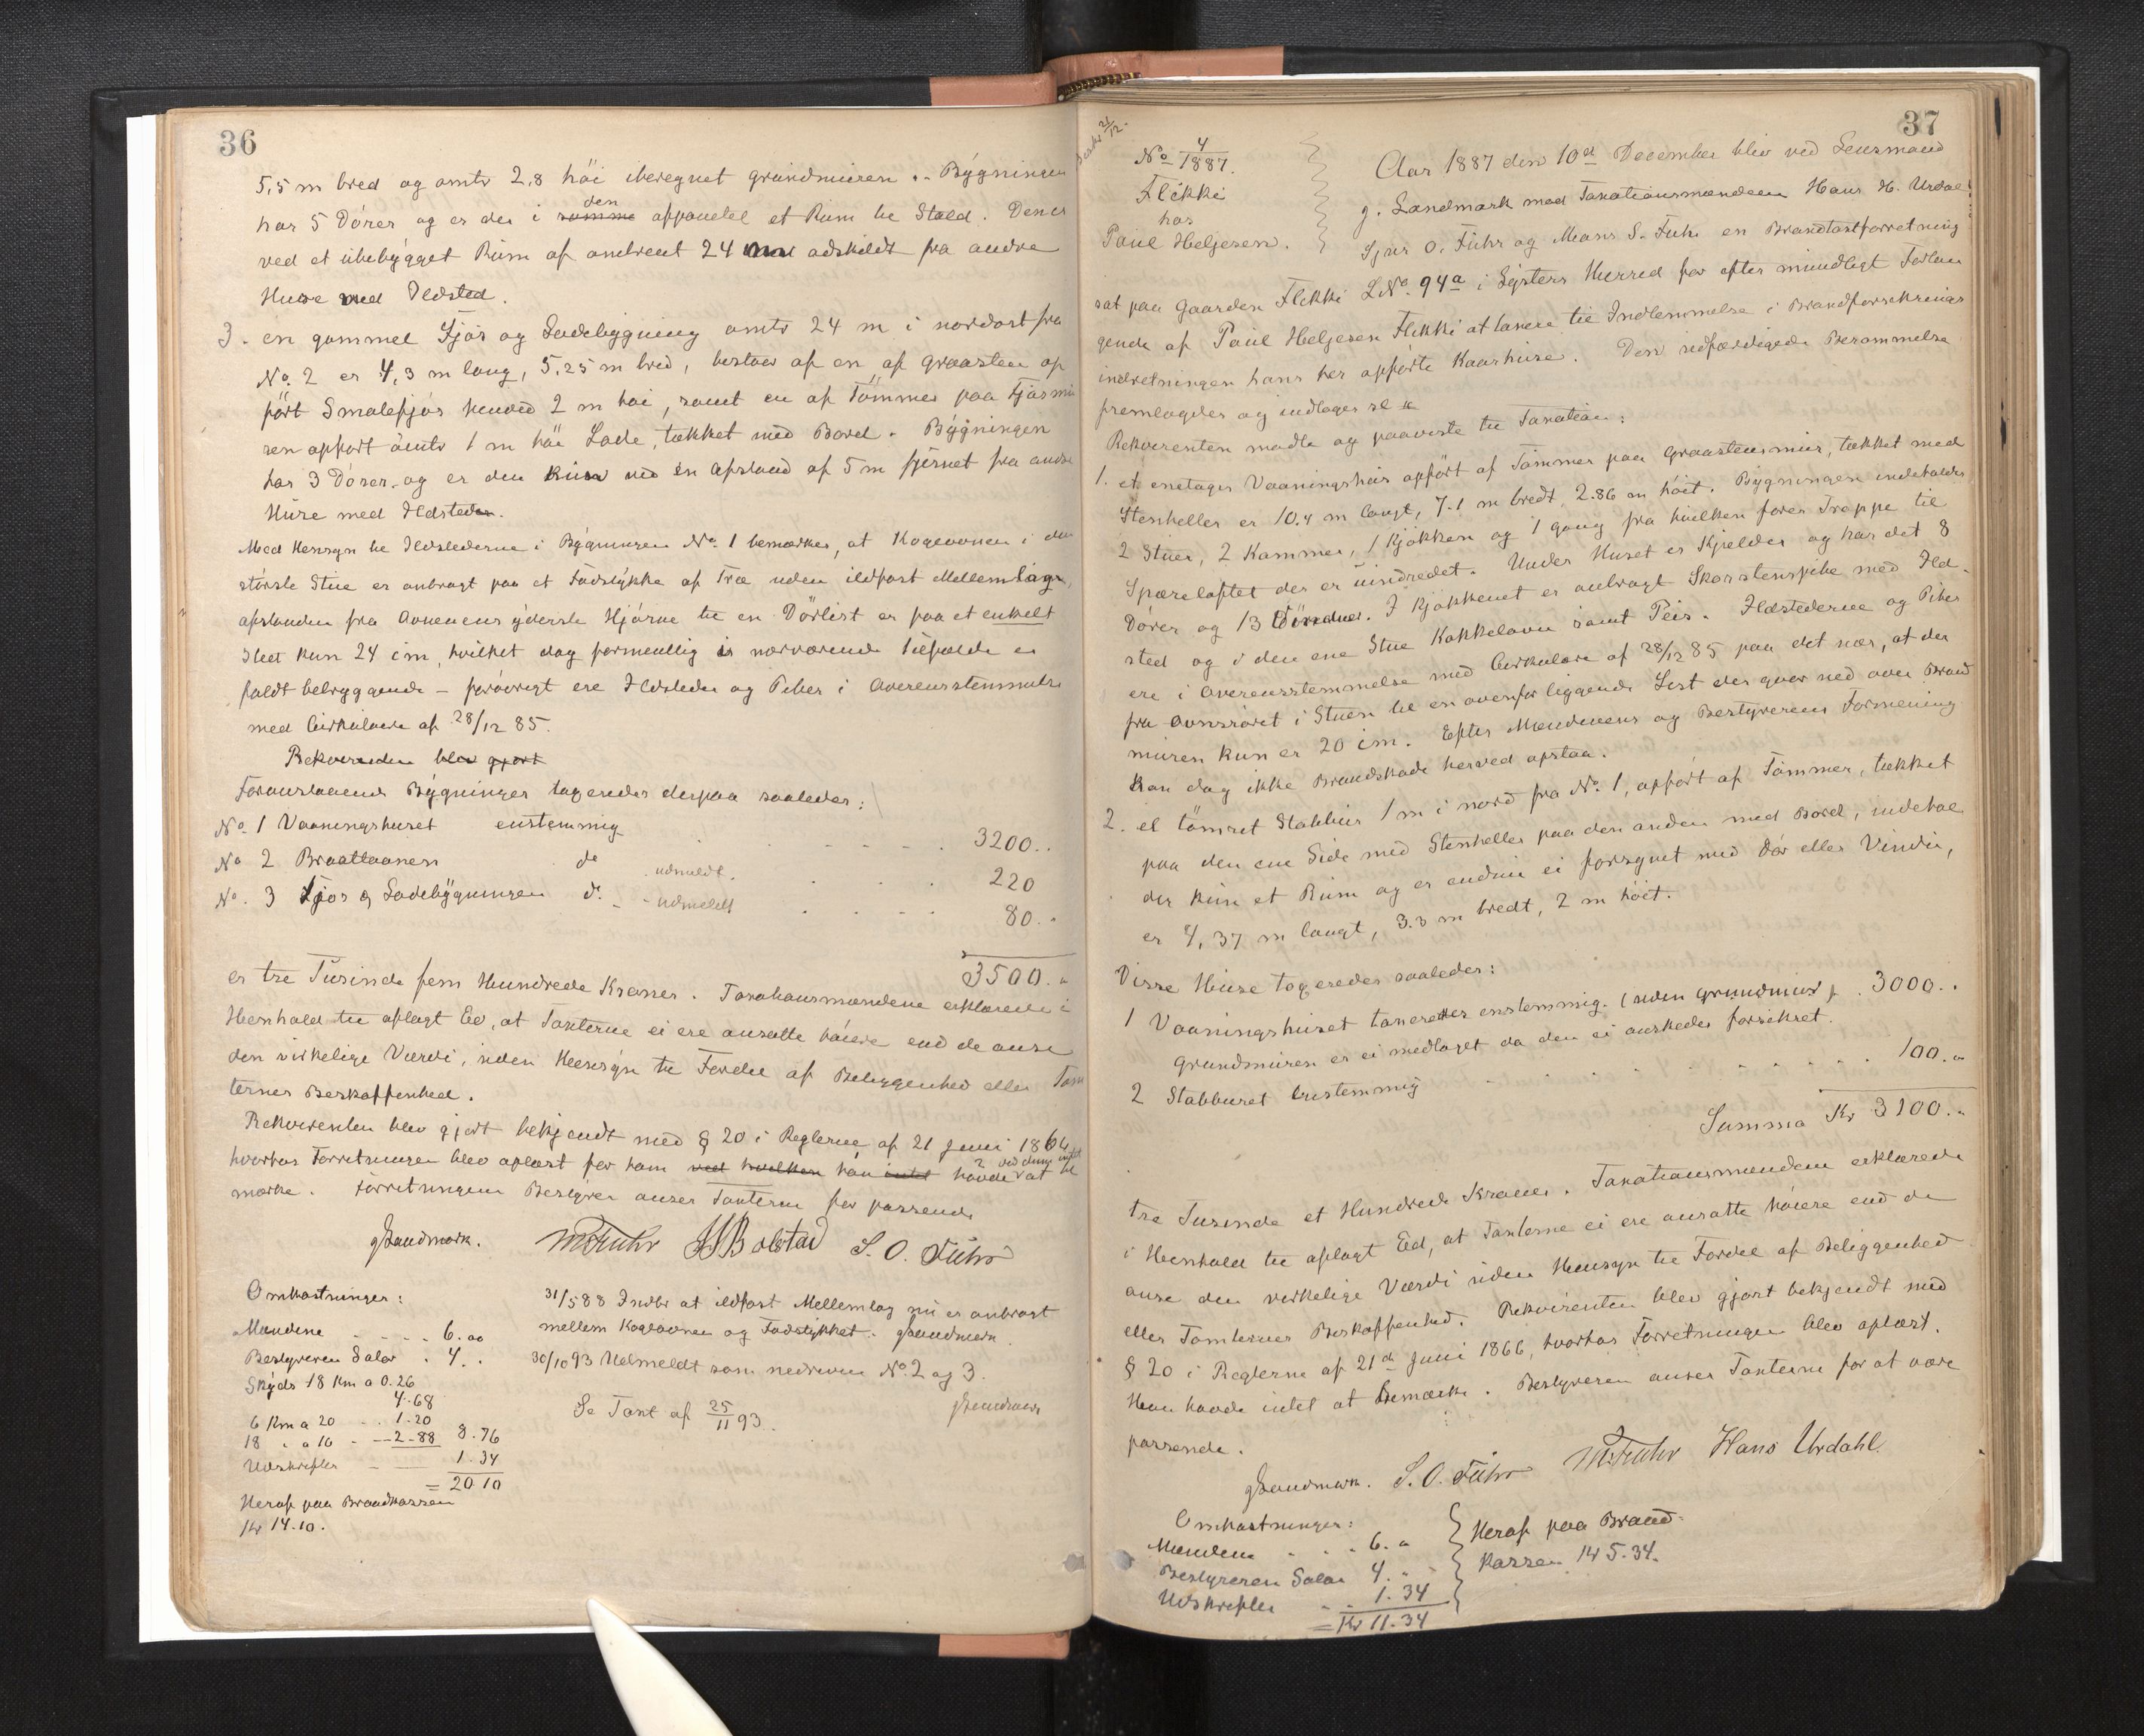 36
5,5 m bred og omtr 2,8 höi iberegnet grundmuren .- Bygningen
har 5 Dörer og er der i den samme oppanelet et Rum til Stald. Den er
ved et ubebygget Rum af omtrent 24 m adskildt fra andre
Huse med Ildsted.
3. en gammel Fjös og Ladebygning omtr 24 m i nordost fra
No. 2 er 4,3 m lang, 5,25 m bred, bestaar af en af Graasten op
fört Smalefjös henved 2 m höi, samt en af Tömmer paa Fjösmu
ren opfört omtr 1 m höi Lade, tækket med Bord. Bygningen
har 3 Dörer og er den kun ved en Afstand af 5 m fjernet fra andre
Huse med Ildsteder.
Med Hensyn til Ildstederne i Bygningen No. 1 bemærkes, at Kogeovnen i den
största Stue er anbragt paa et Fodstykke af Træ uden ildfast Mellemlag,
afstanden fra Ovnenens yderste Hjörne til en Dörlist er paa et enkelt
Sted kun 24 cm, hvilket dog formentlig i nærværende Tilfælde er
fuldt betryggende - forövrigt ere Ildsteder og Piber i Overensstemmelse
med Cirkulære af 28/12 85.
Rekvirenten blev gjort
Foranstaaende Bygninger taxeredes derpaa saaledes:
No. 1 Vaaningshuset enstemmig 3200..
No 2 Braatlaanen do udmeldt. 220
No. 3 Fjös og Ladebygningen do. - udmeldt 80..
3500.
er tre Tusinde fem Hundrede Kroner. Taxationsmændene erklærede i
Henhold til aflagt Ed, at Taxterne ei ere ansatte höiere end de anse
den virkelige Værdi, uden Hensyn til Fordel af Beliggenhed eller Tom
ternes Beskaffenhed.
Rekvirenten blev gjort bekjendt med § 20 i Reglerne af 21 Juni 1866
hvorhos Forretningen blev oplæst for ham ved hvilken han intet havde ved denne intet at be
mærke. Forretningens Bestyrer anser Taxterne for passende
GLandmark. MSFuhr HHBolstad S. O. Führ
Omkostninger:
Mændene - - - - 6.00
Bestyreren Salær . 4. .
Skyds 18 Km a 0.26
4.68
6 Km a 20 . . 1.20
18 " a 16 - -- 2.88 8.76
Udskrifter - -- 1.34
= 20.10
Heraf paa Brandkassen
Kr 14.10.
31/5 88 Indbr at ildfast Mellemlag nu er anbragt
mellem Kogeovnen og Fodstykket. GLandmark
30/10 93 Udmeldt som nedreven No. 2 og 3.
GLandmark
Se Taxt af 25/11 93.
37
21/12.
No 4/1887.
Flikki
hos
Paul Heljesen.
Aar 1887 den 10de December blev ved Lensmand
g. Landmark med Taxationsmændene Hans H. Urdal
Sjur O. Führ og Mons S. Fuhr en Brandtaxtforretning
sat paa Gaarden Flikki LNo. 94a i Lysters Herred for efter mundtligt Forlan
gende af Paul Heljesen Flikki at taxere til Indlemmelse i Brandforsikrings
indretningen hans her opförte Kaarhuse. Den udfærdigede Berammelse
fremlagdes og indtages
Rekvirenten mödte og paaviste til Taxation:
1. et enetages Vaaningshus opfört af Tömmer paa Graastensmur, tækket med
Stenheller er 10.4 m langt, 7.1 m bredt, 2.86 m höit. Bygningen indeholder
2 Stuer, 2 Kammer, 1 Kjökken og 1 gang fra hvilken förer Trappe til
Sparreloftet der er uindredet. Under Huset er Kjelder og har det 8
Dörer og 13 Vinduer. I Kjökkenet er anbragt Skorstenspibe med Ild-
sted og i den ene Stue Kakkelovn samt Peis. Ildstederne og Piber
ere i Overensstemmelse med Cirkulære af 28/12 85 paa det nær, at der
fra Ovnsröret i Stuen til en ovenfor liggende List der gaar ned over Brand
muren kun er 20 cm. Efter Mændenens og Bestyrerens Formening
kan dog ikke Brandskade herved opstaa.
2. et tömret Stabbur 1 m i nord fra No. 1, opfört af Tömmer, tækket
paa den ene Side med Stenheller paa den anden med Bord, indehol
der kun et Rum og er endnu ei forsynet med Dör eller Vindu,
er 4,37 m langt, 3.3 m bredt, 2 m höit.
Disse Huse taxeredes saaledes:
1 Vaaningshuset taxeredes enstemmig (uden Grundmur) . 3000..
Grundmuren er ei medtaget da den ei önskedes forsikret.
2 Stabburet Enstemmig 100.
Summa Kr 3100.
tre Tusinde et Hundrede Kroner. Taxationsmændene erklærede
i Henhold til aflagt Ed, at Taxterne ei ere ansatte höiere end de
anse den virkelige Værdi uden Hensyn til Fordel af Beliggenhed
eller Tomternes Beskaffenhed. Rekvirenten blev gjort bekjendt med
§ 20 i Reglerne af 21de Juni 1866, hvorhos Forretningen blev oplæst.
Han havde intet at bemærke. Bestyreren anser Taxterne for at være
passende.
GLandmark. S. O. Führ MSFuhr Hans Urdahl
Omkostninger:
Mændene - - - 6.
Bestyreren Salær 4. "
Udskrifter - - 1.34
= Kr 11.34
Heraf paa Brand-
kassen Kr 5.34.